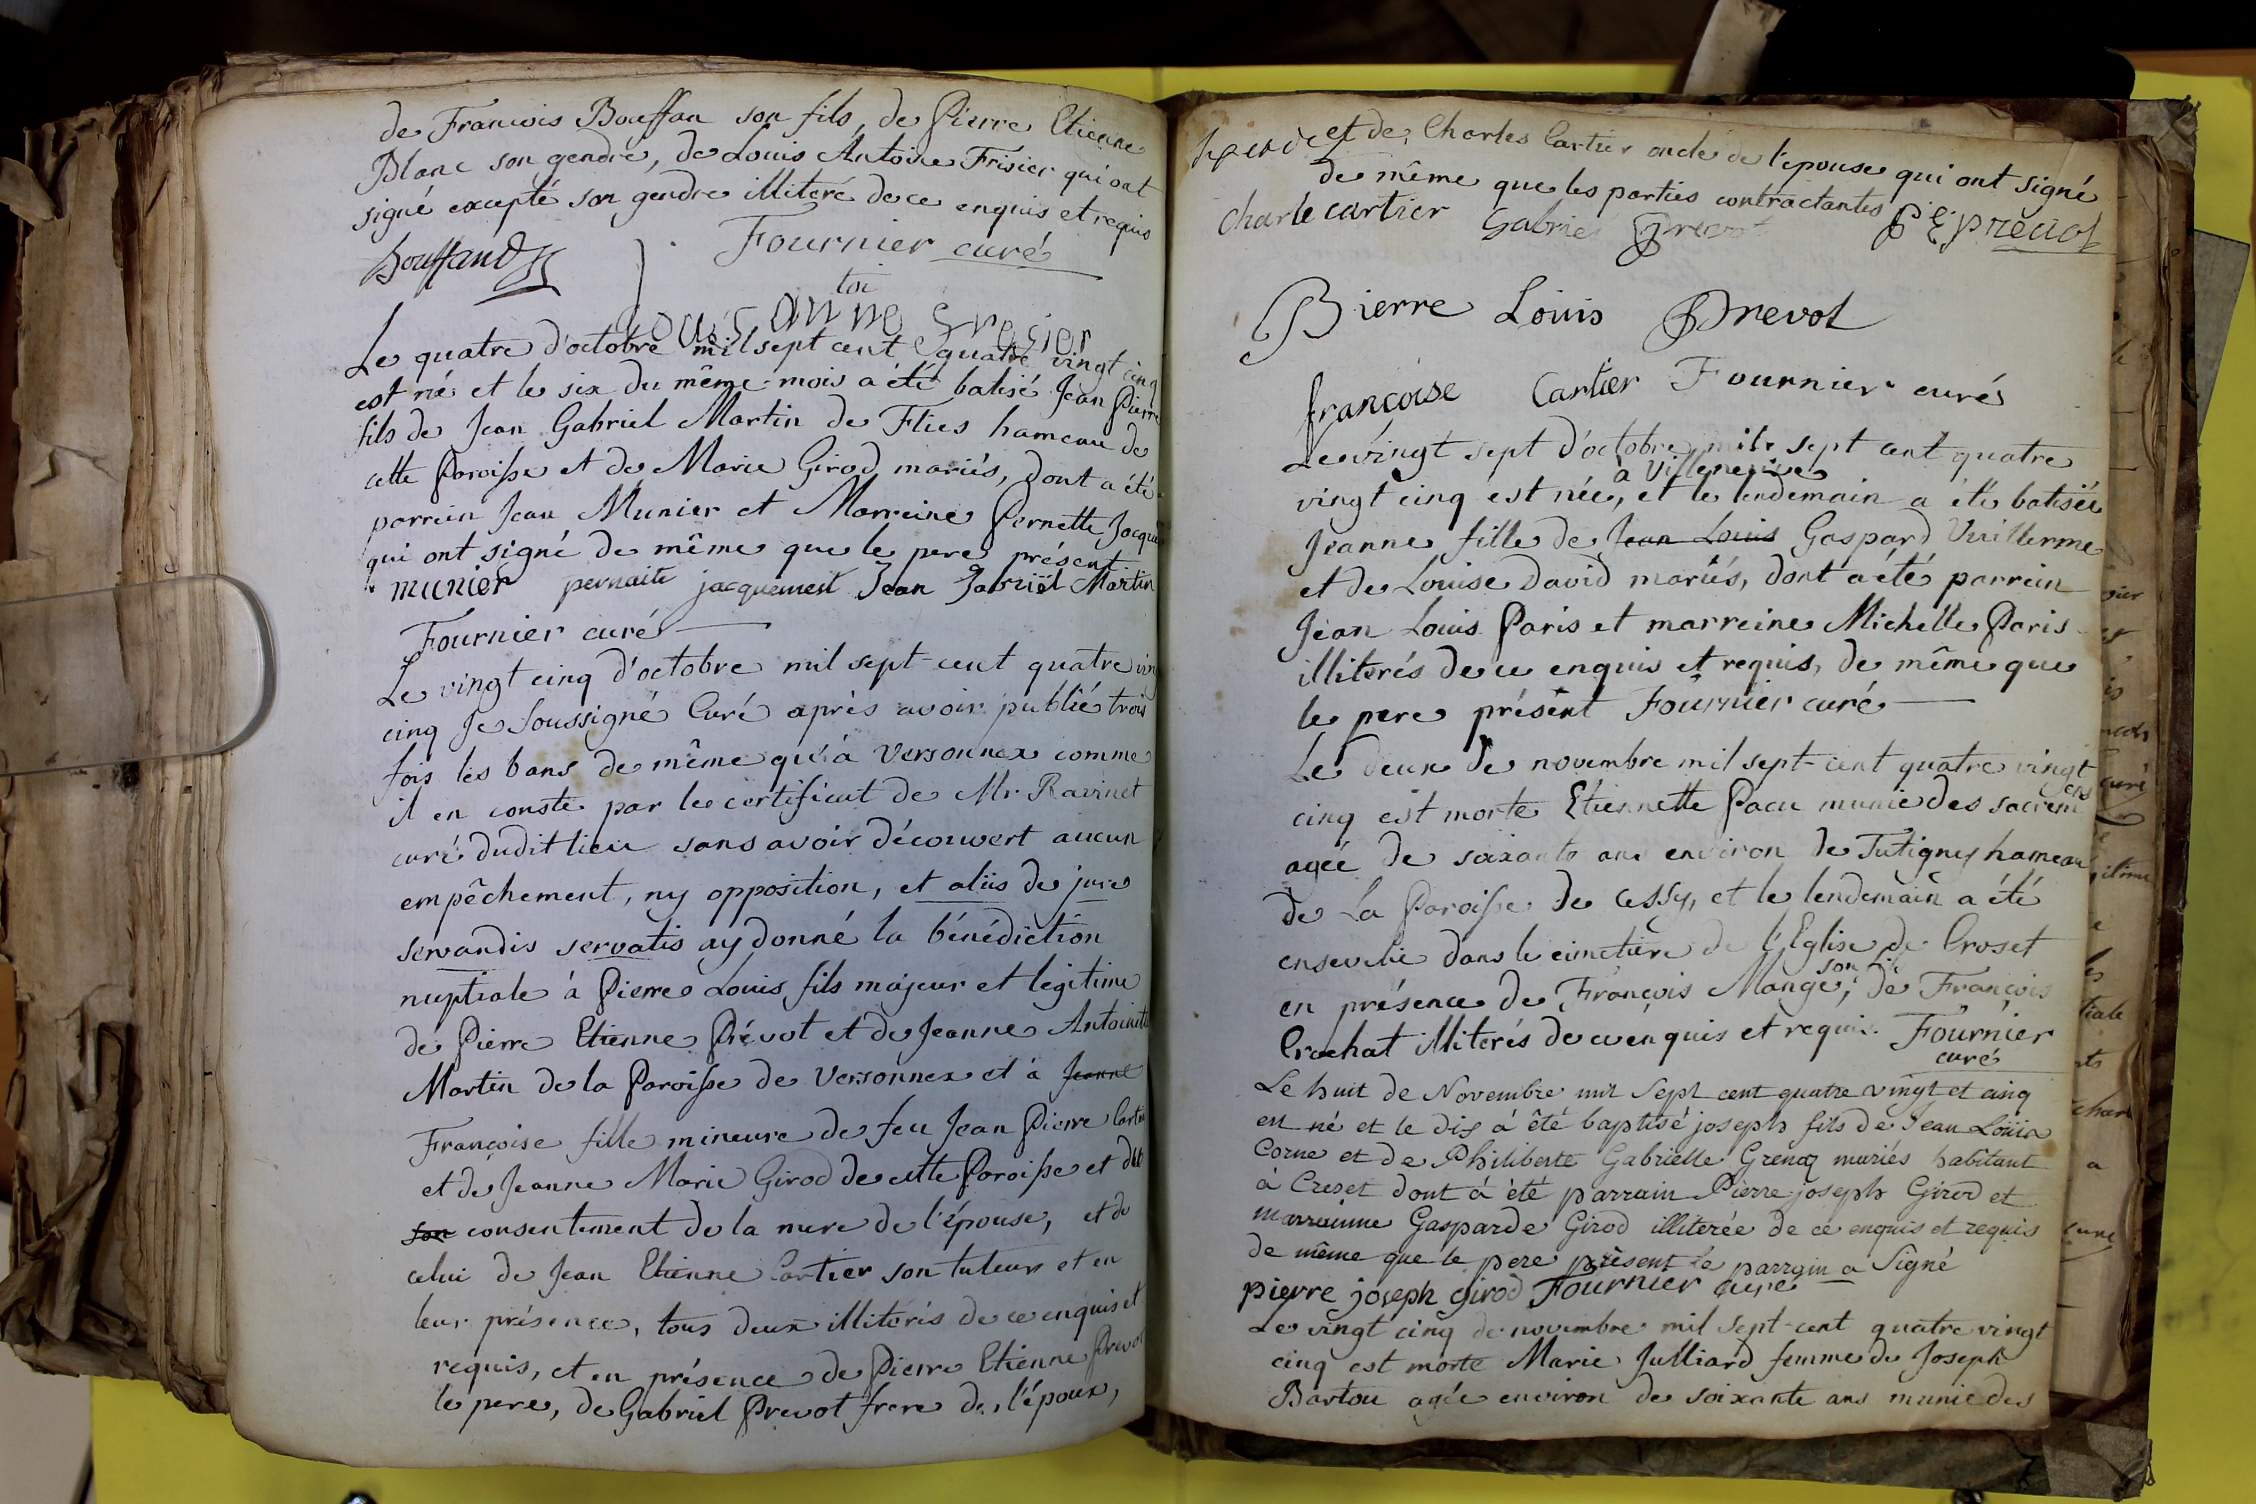 de François Bouffan son fils, de Pierre Etienne
Blanc son gendre, de Louis Antoine Frisier qui ont
signé excepté son gendre illiteré de ce enquis et requis
Bouffand
Fournier curé
toi
Le quatre d'octobre mil sept cent quatre vingt cinq
est né et le six du même mois a été batisé Jean Pierre
fils de Jean Gabriel Martin de Flies hameau de
cette Paroisse et de Marie Girod mariés, dont a été
parrein Jean Munier et Marreine Pernette Jacque
qui ont signé de même que le pere présent
munier pernaite jacquemest Jean Gabriël Martin
Fournier curé
Le vingt cinq d'octobre mil sept-cent quatre vin
cinq Je Soussigné Curé après avoir publié trois
fois les bans de même qu'à Versonnex comme
il en conste par le certificat de Mr. Ravinet
curé dudit lieu sans avoir découvert aucun
empêchement, ny opposition, et aliis de jure
servandis servatis ay donné la bénédiction
nuptiale à Pierre Louis fils majeur et legitime
de Pierre Etienne Prévot et de Jeanne Antoinite
Martin de la Paroisse de Versonnex et à Jeanne
Françoise fille mineure de feu Jean Pierre Cartie
et de Jeanne Marie Girod de cette Paroisse et du
son consentement de la mere de l'épouse, et de
celui de Jean Etienne Cartier son tuteur et en
leur présence, tous deux illiterés de ce enquis et
requis, et en présence de Pierre Etienne Prevot
le pere, de Gabriel Prevot frere de l'époux,
et de Charles Cartier oncle de l'epouse qui ont signé
de même que les parties contractantes
charle cartier Gabriel Prevot P E prevot
Pierre Louis Prevot
françoise Cartier Fournier curé
Le vingt sept d'octobre mil sept cent quatre
à Villeneuve
vingt cinq est née, et le lendemain a été batisée
Jeanne fille de Jean Louis Gaspard Vuillerme
et de Louise David mariés, dont a été parrein
Jean Louis Paris et marreine Michelle Paris
illiterés de ce enquis et requis, de même que
le pere présent Fournier curé
Le deux de novembre mil sept-cent quatre vingt
cinq est morte Etiennette Pacu munie des sacrem
ens
agée de soixante ans environ de Tutigny hameau
de La Paroisse de Cessy, et le lendemain a été
ensevelie dans le cimetiere de l'Eglise de Croset
son
en présence de François Mange, de François
Crochat illiterés de ce enquis et requis. Fournier
curé
Le huit de Novembre mil Sept cent quatre vingt et cinq
est né et le dix à été baptisé joseph fils de Jean Loüis
Corne et de Philiberte Gabrielle Grenoz mariés habitant
à Creset dont à été parrain Pierre joseph Girod et
marrainne Gasparde Girod illiterée de ce enquis et requis
de même que le pere présent le parrain a Signé
pierre joseph girod Fournier curé
Le vingt cinq de novembre mil sept-cent quatre vingt
cinq est morte Marie Julliard femme de Joseph
Bartou agée environ de soixante ans munie des